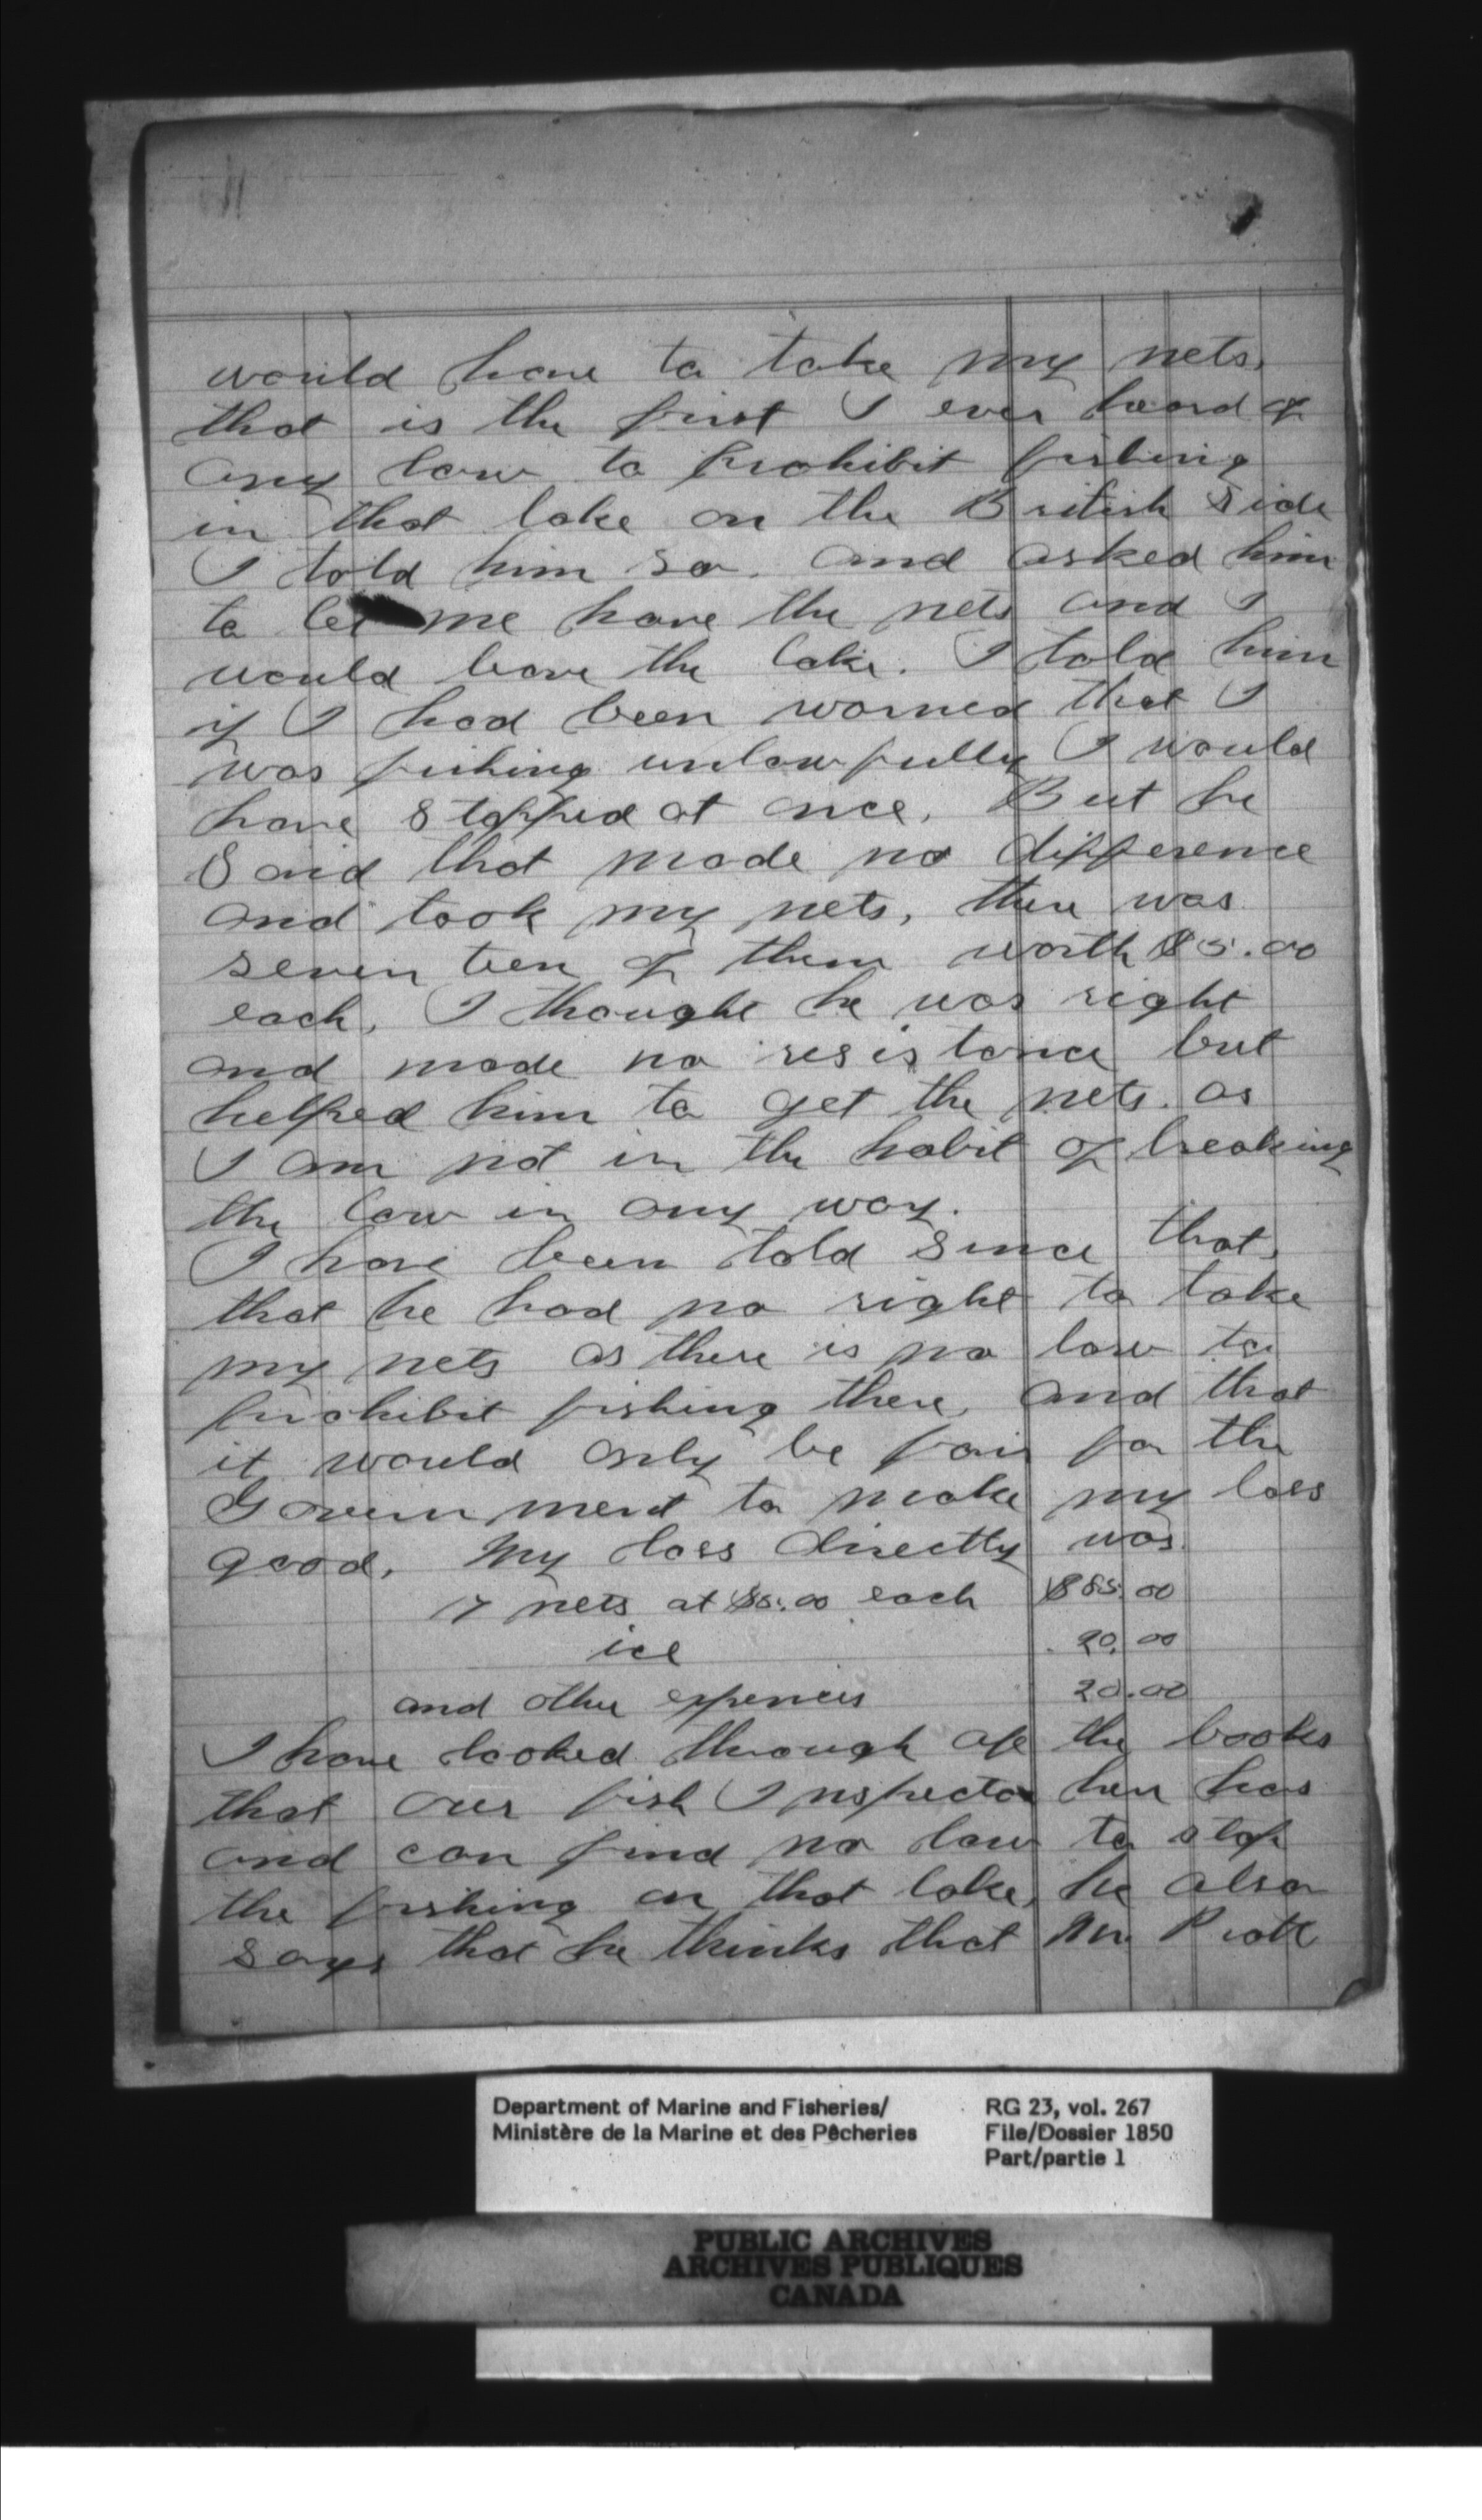 would have to take my nets,
that is the first I ever heard of
any law to prohibit fishing
in that lake on the British Side
I told him so. and asked him
to let me have the nets and I
would leave the lake. I told him
if I had been warned that I
was fishing unlawfully I would
have Stopped at once. But he
Said that made no difference
and took my nets, there was
seven teen of them worth $5.00
each, I thought he was right
and made no resistance but
helped him to get the nets. as
I am not in the habit of breaking
the law in any way.
I have been told Since that,
that he had no right to take
my nets as there is no law to
prohibit fishing there, and that
it would only be fair for the
Government to make my loss
good. My loss directly was
17 nets at $5.00 each $85.00
ice 20.00
and other expences 20.00
I have looked through all the books
that our fish Inspector here has
and can find no law to stop
the fishing on that lake, he also
says that he thinks that Mr
Department of Marine and Fisheries/
Ministère de la Marine et des Pêcheries
RG 23, vol. 267
File/Dossier 1850
Part/partie 1
PUBLIC ARCHIVES
ARCHIVES PUBLIQUES
CANADA